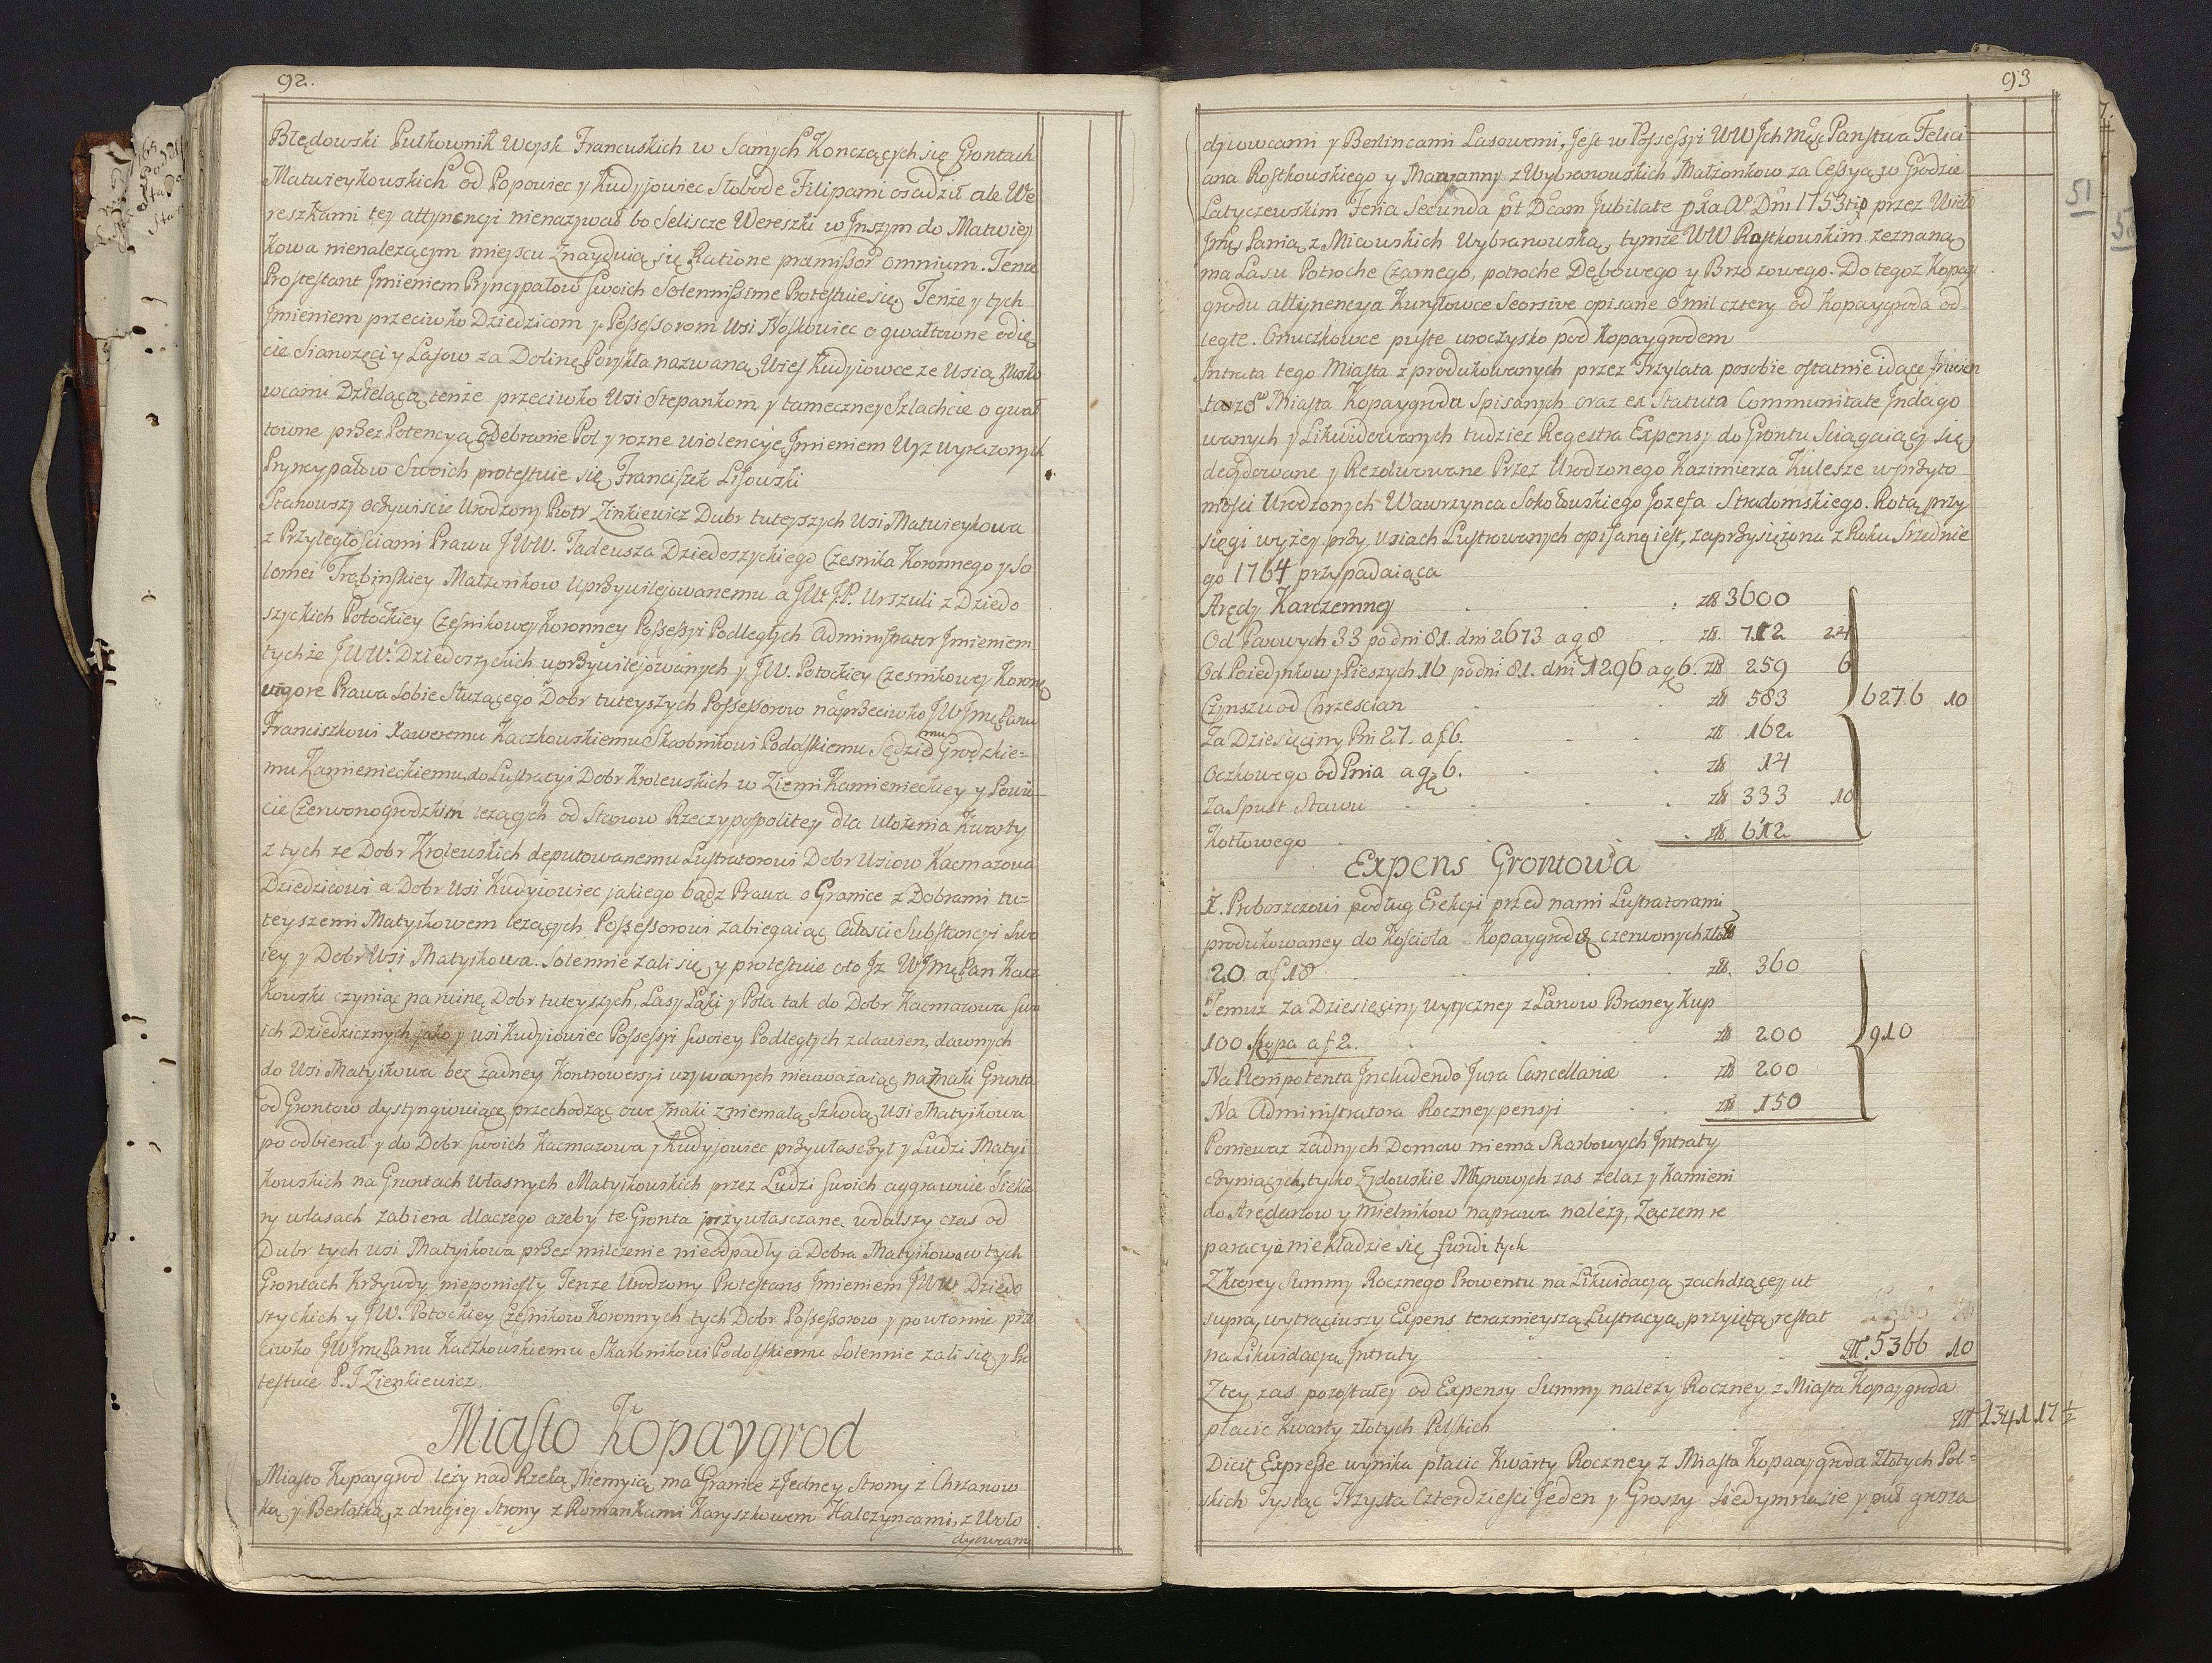 92.
Błędowski Pułkownik Woysk Francuskich w Samych Konczących się Grontach
Matwieykowskich od Popowiec y Kudyjowiec Słobode Filipami osadził ale We
reszkami tey attynencyi nienazywał bo Seliscze Wereszki w Jnszym do Matwiey
kowa nienalezącym mieyscu Znayduią się Ratione præmissor omnium. Tenze
Protestant Jmieniem Pryncypałow swoich Solennissime Protestuie się, Tenże y tych
Jmieniem przeciwko Dziedzicom y Possessorom Wsi Noskowiec o gwałtowne odię
cie Sianożęci y Lasow za Dolinę nazwaną Wieś Kudyiowce ze Wsią Nosko
wcami Dzielącą, tenże przeciwko Wsi Stepankom y tameczney Szlachcie o gwał
towne przez Potencyą Odebranie Pol y rozne wiolencye, Jmieniem Wyz wyrazonych
Pryncypałow Swoich protestuie się Franciszek Lisowski
Stanowszy oczywiscie Urodzony Piotr Zinkiewicz Dobr tuteyszych Wsi Matwieykowa
z Przyległosciami Prawu JWW. Tadeusza Dziedoszyckiego Czesnika Koronnego y Sa
lomei Trębinskiey Małzonkow Uprzywilejowanemu a JW. J.P. Urszuli z Dziedo
szyckich Potockiey Czesnikowey Koronney Possessyi Podległych Administrator Jmieniem
tychże JWW. Dziedoszyckich uprzywilejowanych y JW. Potockiey Czesnikowey Koronney
vigore Prawa sobie Służącego Dobr tuteyszych Possessorow naprzeciwko JW Jmę Panu
Franciszkowi Xaweremu Kaczkowskiemu Skarbnikowi Podolskiemu Sędziemu Grodzkie=
mu Kamienieckiemu, do Lustracyi Dobr Krolewskich w Ziemi Kamienieckiey y Powie
cie Czerwonogrodzkim lezących od Stanow Rzeczypospolitey dla ułożenia Kwarty
z tych ze Dobr Krolewskich deputowanemu Lustratorowi Dobr Wsiow Kacmazowa
Dziedzicowi a Dobr Wsi Kudyiowiec jakiego bądz Prawa o Granice z Dobrami tu=
teyszemi Matyikowem lezących Possessorowi zabiegaiąc Całosci Substancyi Swo
iey y Dobr Wsi Matyikowa. Solennie zali się y protestuie oto Jz WJmę Pan Kacz
kowski czyniąc na ruinę Dobr tuteyszych, Lasy Łąki y Pola tak do Dobr Kacmazowa Swo
ich Dziedzicznych jako y wsi Kudyiowiec Possessyi swoiey Podległych z dawien, dawnych
do Wsi Matyikowa bez zadney Kontrowersyi uzywanych nieuważaiąc na Znaki Grunta
od Grontow dystyngwuiące przechodząc owe znaki z niemałą Szkodą Wsi Matyikowa
poodbierał y do Dobr swoich Kacmazowa y Kudyjowiec przywłasczył y Ludzi Matyi
kowskich na Gruntach własnych Matyikowskich przez Ludzi swoich aggrawuie Siekie
ry w lasach zabiera dlaczego azeby te Gronta przywłasczane w dalszy czas od
Dobr tych wsi Matyikowa przez milczenie nieodpadły a Dobra Matyikowa w tych
Grontach Krzywdy nieponiosły Tenze Urodzony Protestans Jmieniem JWW. Dziedo
szyckich y JW. Potockiey Czesnikow Koronnych tych Dobr Possessorow y powtornie prze
ciwko JW Jmę Panu Kaczkowskiemu Skarbnikowi Podolskiemu Solennie zali się y Pro
testuie P. J Zienkiewicz.
Miasto Kopaygrod
Miasto Kopaygrod leży nad Rzeką Niemyią ma Granice z Jedney Strony z Chrzanow
ką y Berlatką, z drugiey Strony z Romankami Karyszkowem Halczyncami, z Wolo
dyowcami
93
51
dyiowcami y Berlincami Lasowemi, Jest w Possessyi WW Jch Mśę Panstwa Felici
ana Rostkowskiego y Maryanny z Wybranowskich Małżonkow za Cessyą w Grodzie
Latyczewskim Feria Secunda pt Dcam Jubilate pxa Ao Dni 1753tio przez Wiel
Jmę Panią z Micowskich Wybranowską, tymże WW Rostkowskim zeznaną
ma Lasu Potroche Czarnego, potroche Dębowego y Brzozowego. Do tegoz Kopay
grodu attynencya Kuryłowce Seorsive opisane o mil cztery od Kopaygroda od
ległe. Omuczkowce puste uroczysko pod Kopaygrodem
Intrata tego Miasta z produkowanych przez Trzylata posobie ostatnie idące Jnwen
tarzow Miasta Kopaygroda Spisanych oraz ex Statuta Communitate Jndago
wanych y Likwidowanych tudziez Regestra Expensy do Grontu Sciągaiącey się
decydowane y Rezolwowane Przez Urodzonego Kazimierza Kulesze w przyto
mości Urodzonych Wawrzynca Sokołowskiego Jozefa Stradomskiego. Rotą przy
sięgi wyżey przy Wsiach Lustrowanych opisaną iest, zaprzysiężona z Roku Srednie
go 1764 przypadaiąca
Arędy Karczemney zł 3600
Od Parowych 33 po dni 81. dni 2673 a gę 8 zł. 712 24
Od Poiedynkow y Pieszych 16 po dni 81. dni 1296 a gę 6. zł 259 6
Czynszu od Chrzescian zł 583
6276 10
Za Dziesięciny Pni 27. a f 6. zł 162
Oczkowego od Pnia a gę 6. zł 14
Za Spust Stawu zł 333 10
Kotłowego zł. 612
Expens Grontowa
X. Proboszczowi podług Erekcyi przed nami Lustratorami
produkowaney do Kościoła Kopaygrod&. czerwonych złot
20 a f 18 zł. 360
Temuz za Dziesięciny wytyczney z Lanow Braney Kup
100 Kopa a f 2. zł 200
910
Na Plenipotenta Jncludendo Jura Cancellariæ zł 200
Na Administratora Roczney pensyi zł 150
Poniewaz zadnych Domow niema Skarbowych Intraty
czyniących, tylko Zydowskie Młynowych zas zelaz y Kamieni
do Arędarzow y Mielnikow naprawa należy, Zaczem re
paracya nie kładzie się fundi tych
Zktorey Summy Rocznego Prowentu na Likwidacyą zachdzącey ut
supra, wytrąciwszy Expens teraznieyszą Lustracyą przyiętą restat
na Likwidacyą Intraty zł. 5366 10
Z tey zas pozostałey od Expensy Summy nalezy Roczney z Miasta Kopaygroda
płacic Kwarty złotych Polskich zł 1341 17 ½
Dicit Expresse wynika płacic Kwarty Roczney z Miasta Kopaaygroda Złotych Pol=
skich Tysiąc Trzysta Czterdziesci Jeden y Groszy siedymnascie y puł grosza